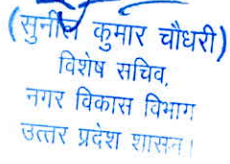 (सुनील कुमार चौधरी)
विशेष सचिव,
नगर विकास विभाग
उत्तर प्रदेश शासन।